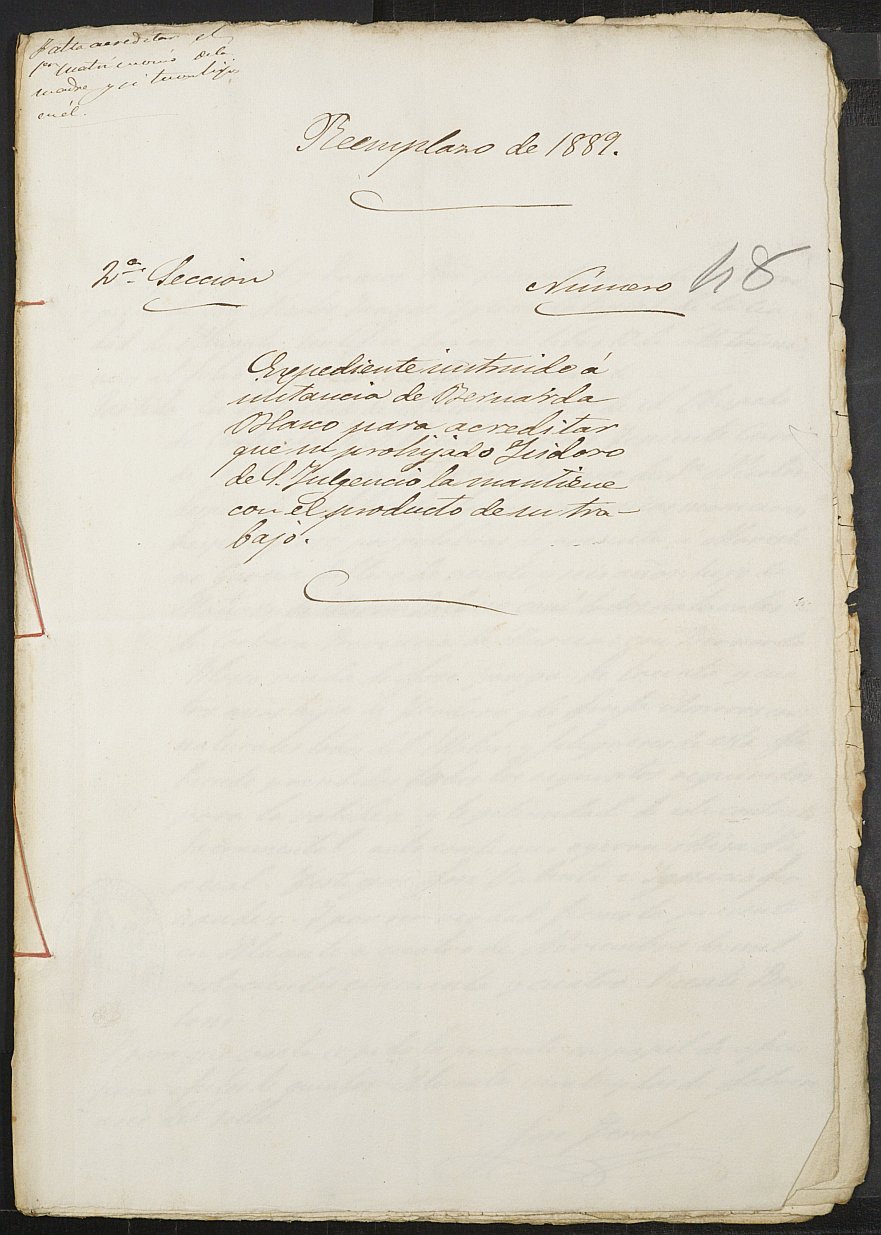 Falta acreditar el
1er matrimonio de la
madre y si tuvo hijos
en él.
Reemplazo de 1889.
2ª Seccion
Número 48
Expediente instruido á
instancia de Bernarda
Blasco para acreditar
que su prohijado Isidoro
de S. Fulgencio la mantiene
con el producto de su tra-
bajo.